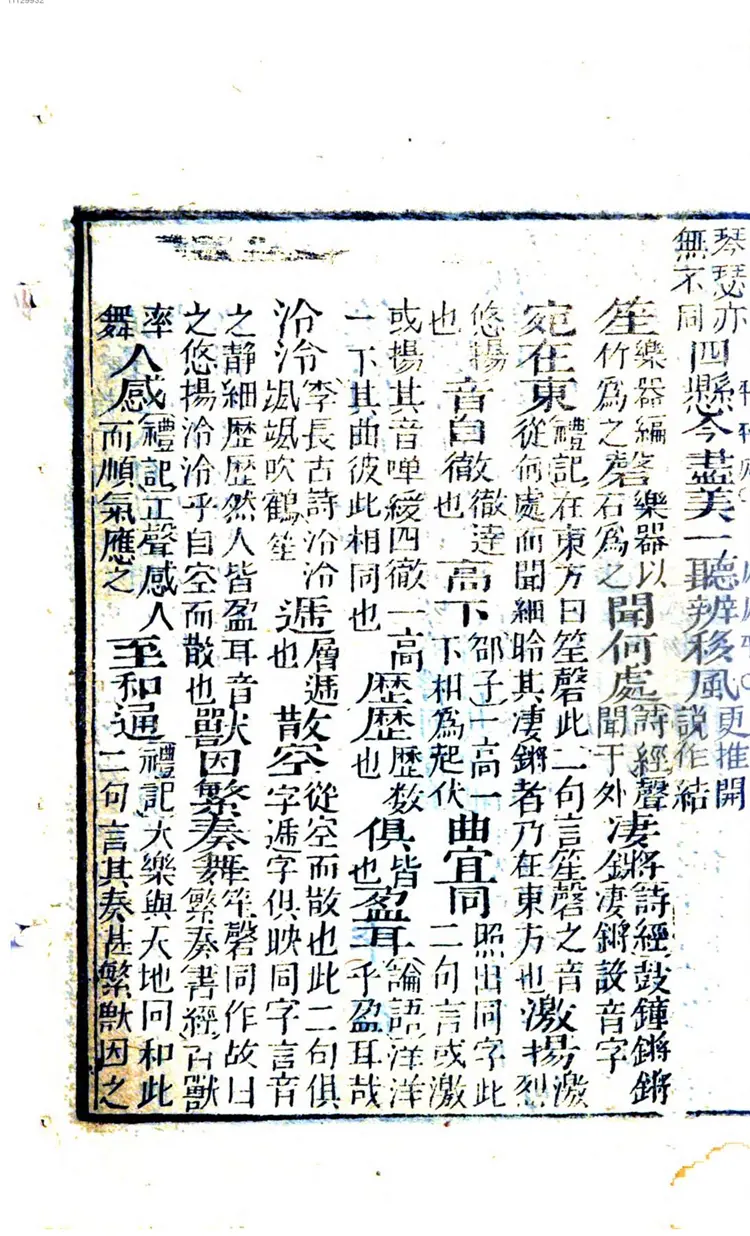 琴瑟亦無不同四懸今盡美一聽辨移風更推開說作結
笙樂器編竹爲之磬樂器以石爲之聞何處詩經聲聞于外凄鏘詩經鼓鐘鏘鏘凄鏘設音字
宛在東禮記在東方曰笙磬此二句言笙磬之音從何處而聞細聆其凄鏘者乃在東方也激揚激揚烈
悠揚也音自徹徹達也高下邵子一高一下相爲起伏曲宜同照出同字此二句言或激
或揚其音嘽緩四徹一高一下其曲彼此相同也歷歷歷數也俱皆也盈耳論語洋洋乎盈耳哉
泠泠李長古詩泠泠颯颯吹鶴笙遞層遞也散空從空而散也此二句俱字遞字俱映同字言音
之靜細歷歷然人皆盈耳音之悠揚泠泠乎自空而散也獸因繁奏舞笙磬同作故曰繁奏書經百獸
率舞人感禮記正聲感人而順氣應之至和通禮記大樂與天地同和此二句言其奏甚繁獸因之